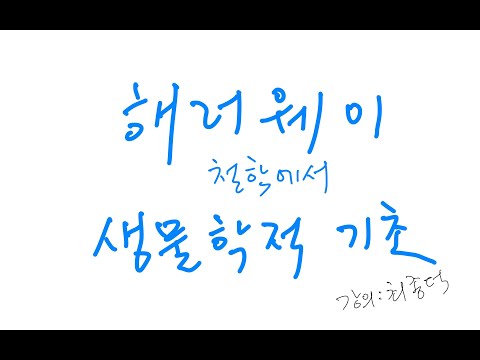 해러웨이
철학에서
생물학적 기초
강의:최종덕